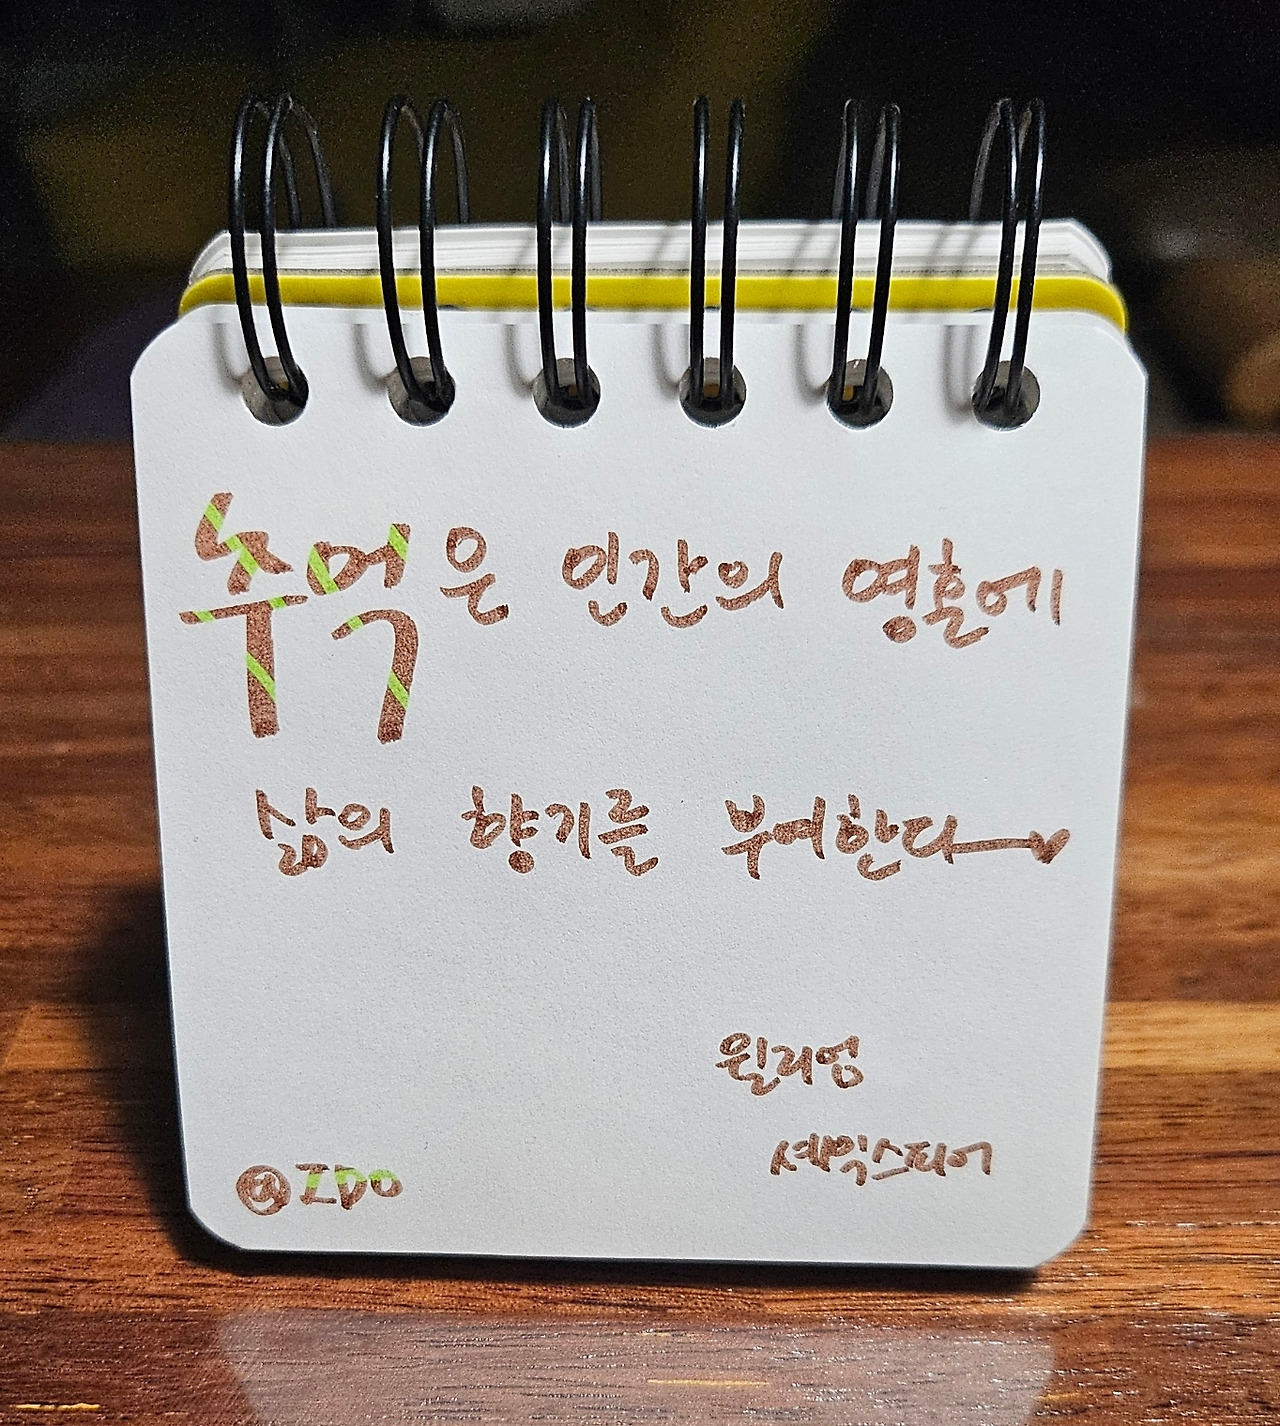 추억은 인간의 영혼에
삶의 향기를 부여한다
윌리엄
셰익스피어
@IDO